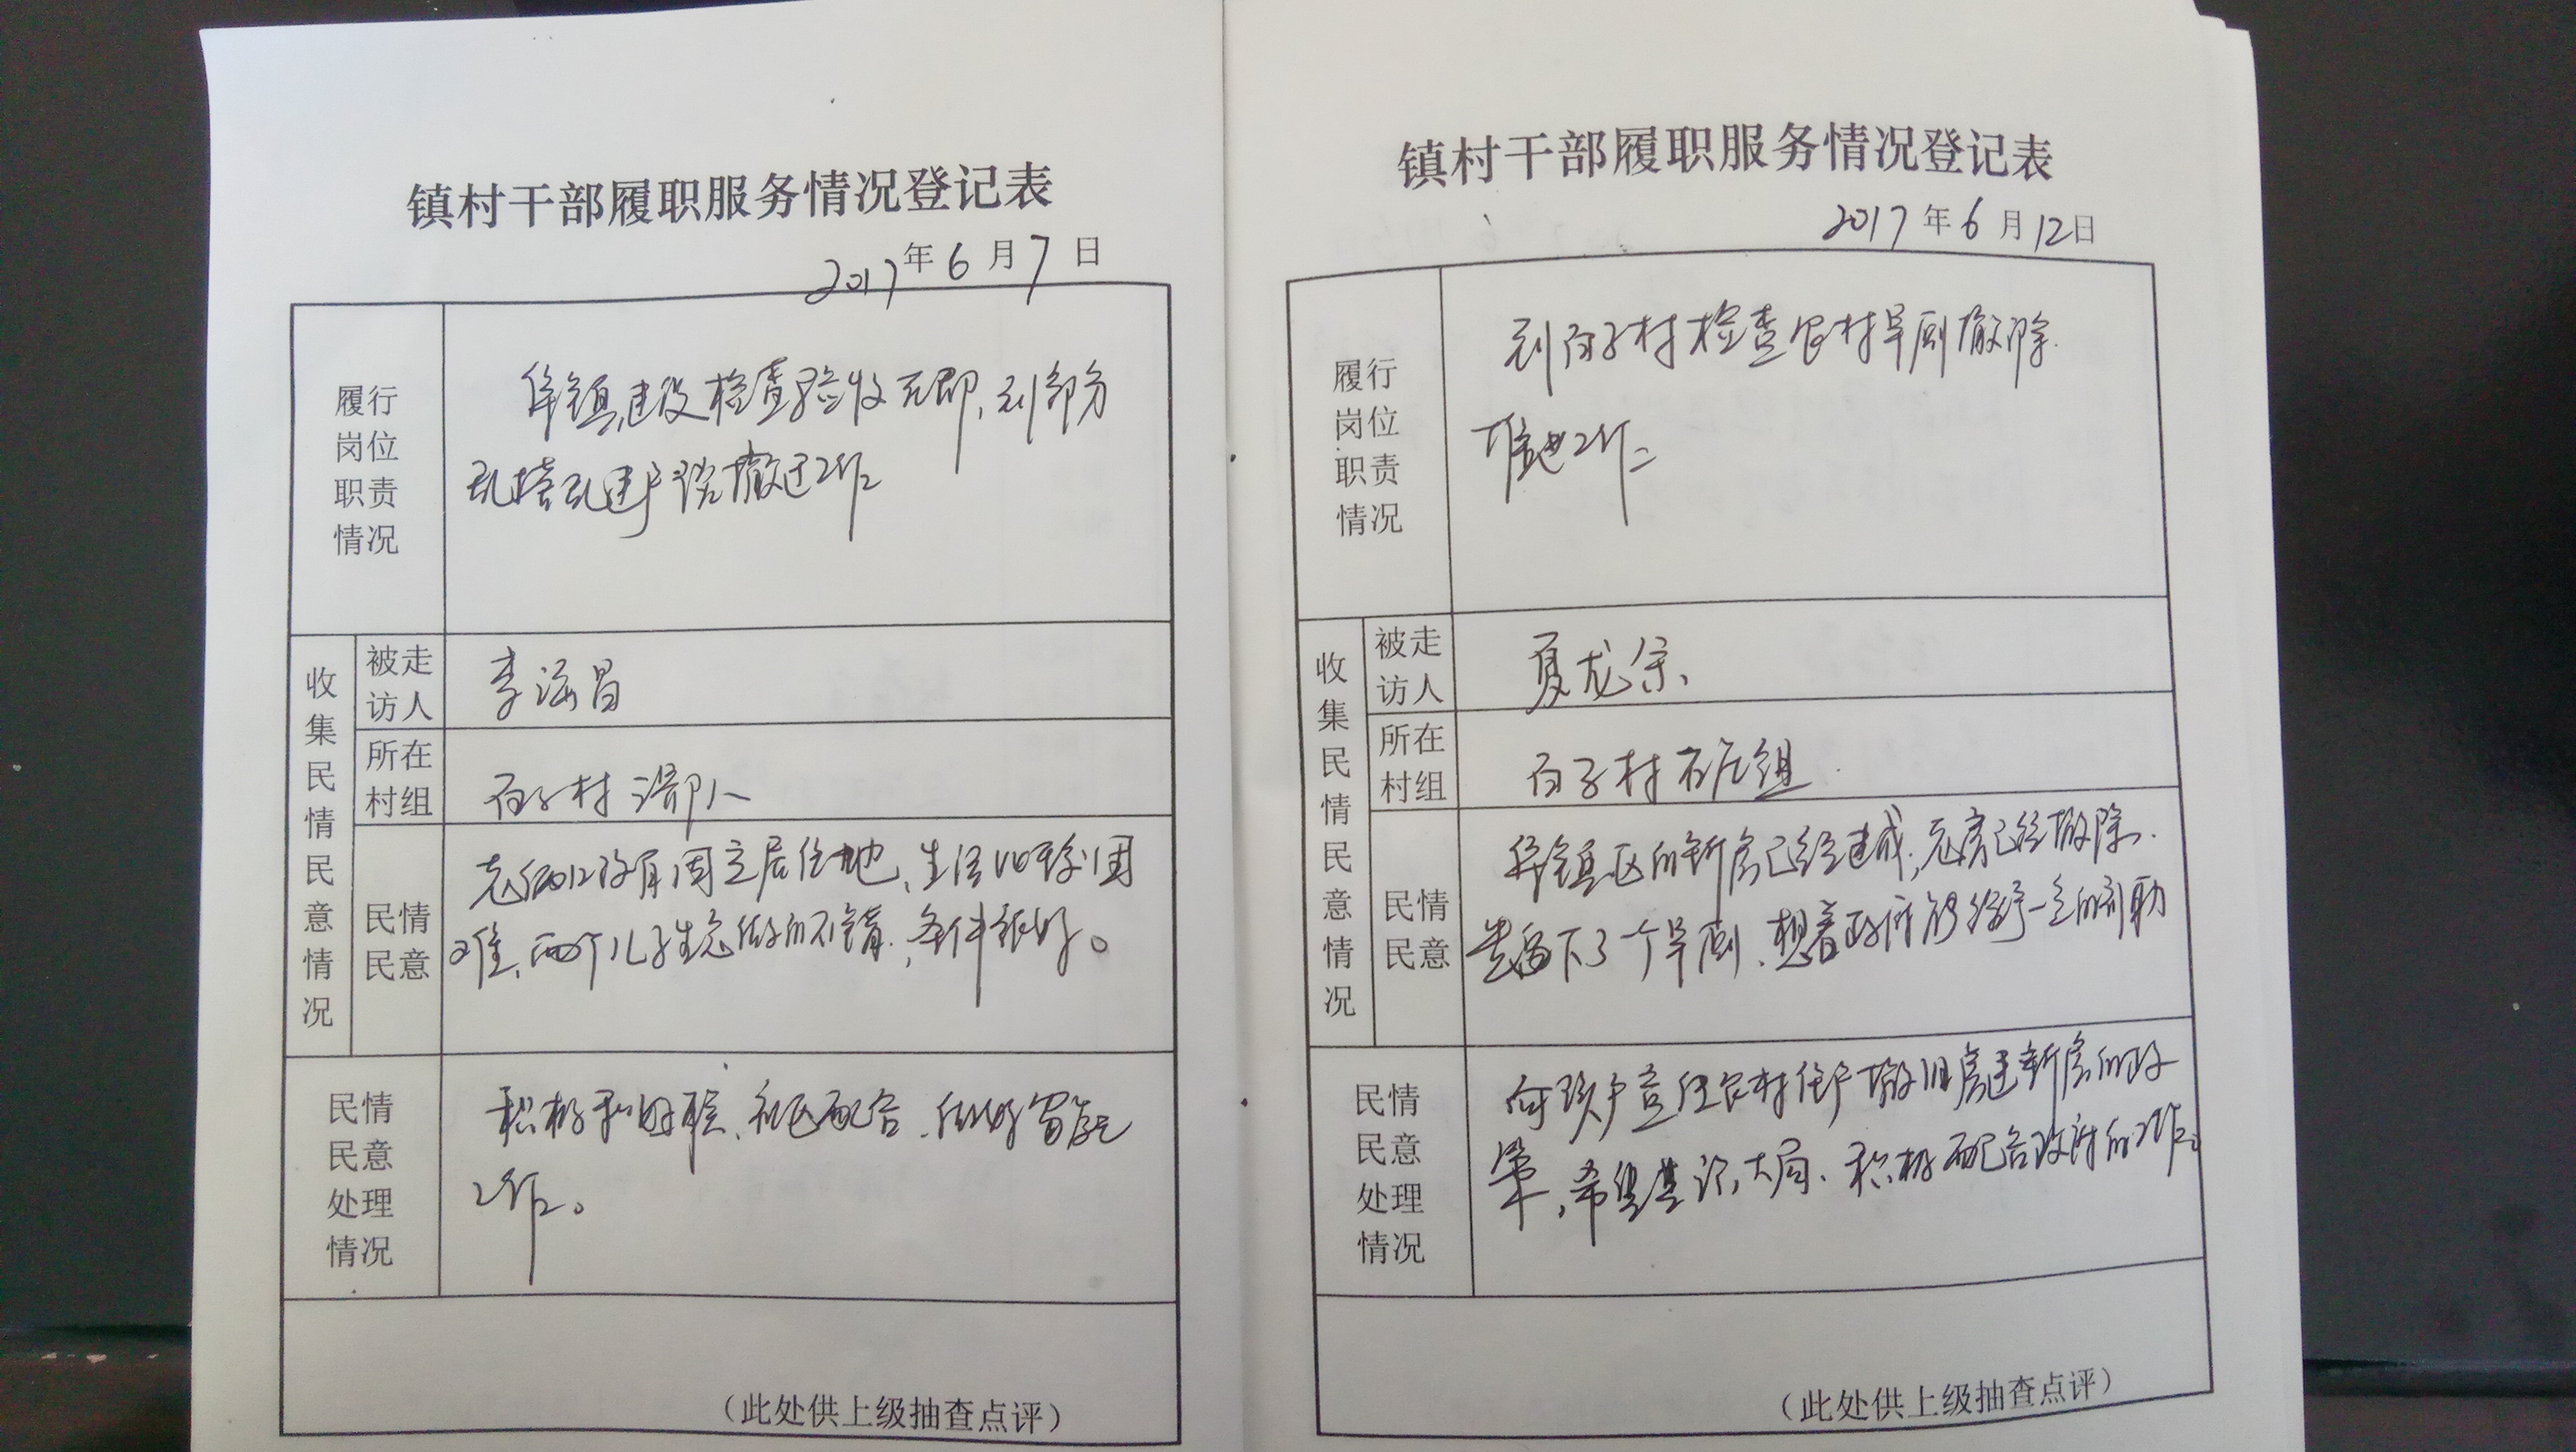 镇村干部履职服务情况登记表
2017年6月7日
履行
岗位
职责
情况
镇建设检查验收在即,到部分
乱搭乱建户说撤迁工作
收集民情民意情况
被走
访人
李海昌
所在
村组
百子村
民情
民意
老两口没有固定居住地、生活比较困
难、两个儿子生意做的不错,条件很好。
民情
民意
处理
情况
积极和联、社区配合、做好
工作。
(此处供上级抽查点评)
镇村干部履职服务情况登记表
2017年6月12日
履行
岗位
职责
情况
到百子村检查农村旱厕撤除
工作
收集民情民意情况
被走
访人
夏龙宗
所在
村组
百子村组
民情
民意
镇区的新房已经建成,老房已经撤除.
留下了一个旱厕、想着政府能给予一定的补助
民情
民意
处理
情况
向该户宣传农村住户撤旧房建新房的政
策,希望其识大局、积极配合政府的工作。
(此处供上级抽查点评)